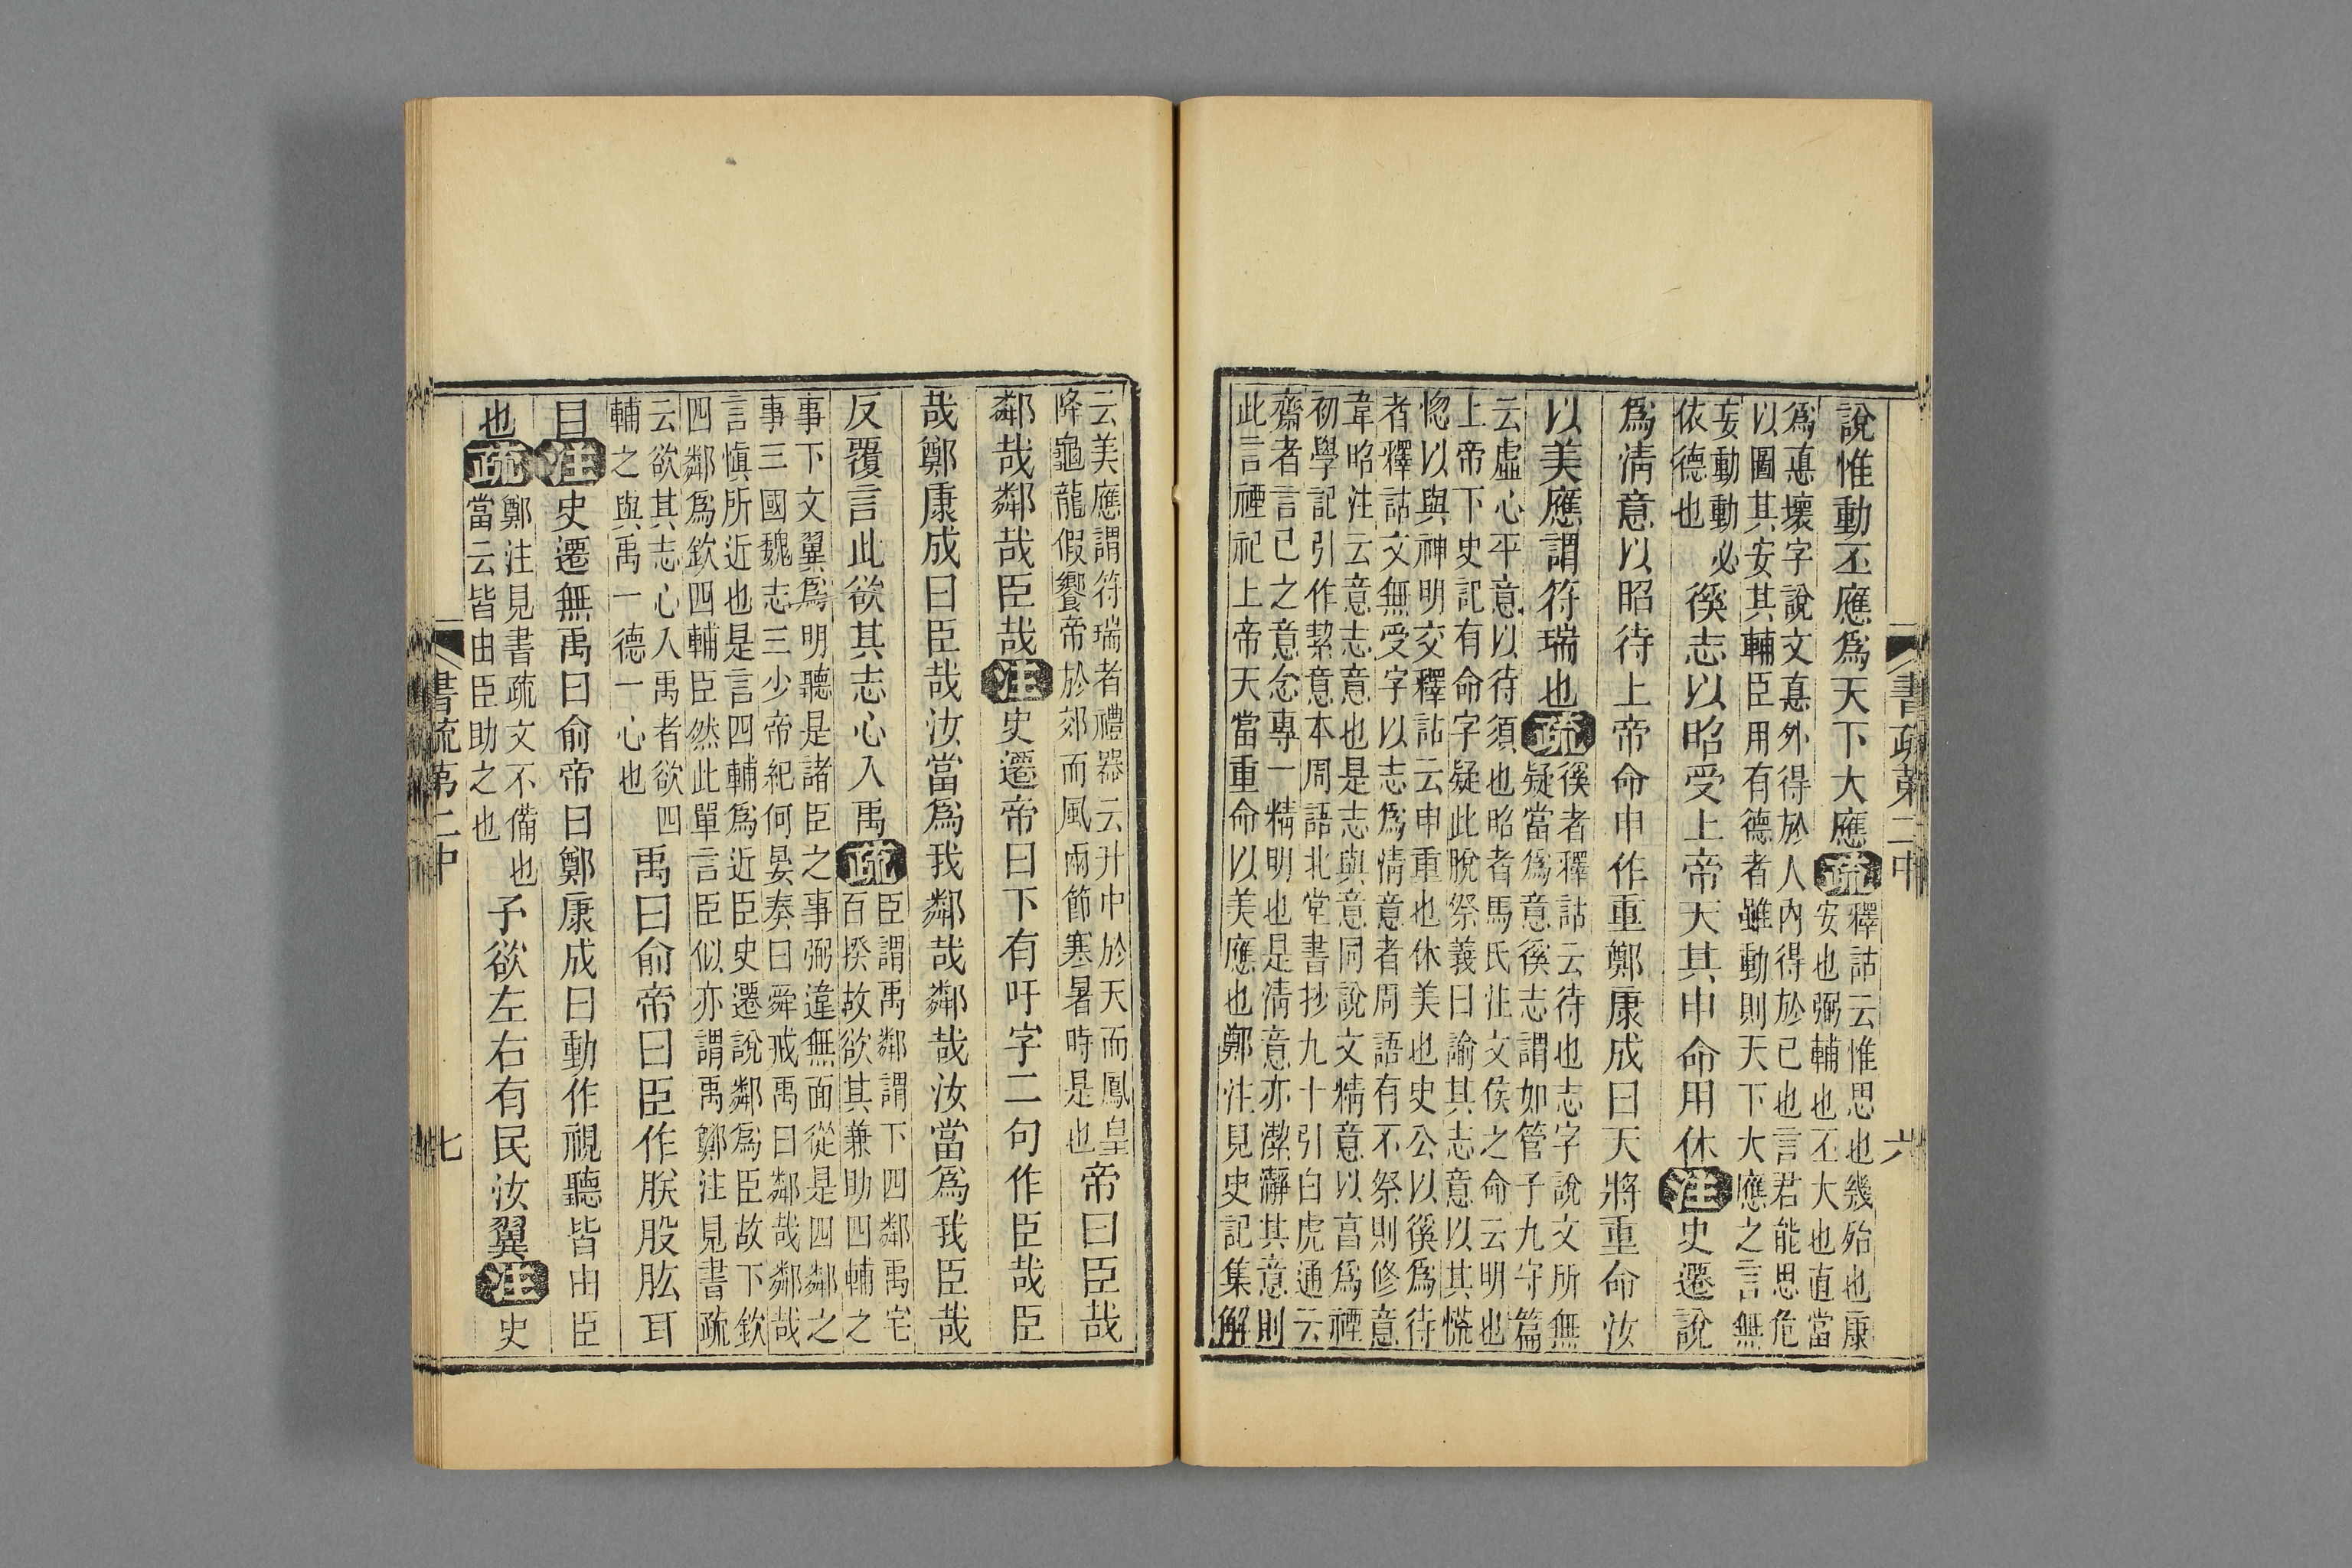 書疏第二中 六
說惟動丕應爲天下大應疏釋詁云惟思也幾殆也康
安也弼輔也丕大也直當
爲悳壞字說文悳外得於人內得於己也言君能思危
以圖其安其輔臣用有德者雖動則天下大應之言無
妄動動必
依德也
徯志以昭受上帝天其申命用休注史遷說
爲淸意以昭待上帝命申作重鄭康成曰天將重命汝
以美應謂符瑞也疏徯者釋詁云待也志字說文所無
疑當爲意徯志謂如管子九守篇
云虛心平意以待須也昭者馬氏注文侯之命云明也
上帝下史記有命字疑此脫祭義曰諭其志意以其慌
惚以與神明交釋詁云申重也休美也史公以徯爲待
者釋詁文無受字以志爲情意者周語有不祭則修意
韋昭注云意志意也是志與意同說文精意以亯爲禋
初學記引作絜意本周語北堂書抄九十引白虎通云
齋者言己之意念專一精明也是淸意亦潔瀞其意則
此言禋祀上帝天當重命以美應也鄭注見史記集解
云美應謂符瑞者禮器云升中於天而鳳皇
降龜龍假饗帝於郊而風雨節寒暑時是也
帝曰臣哉
鄰哉鄰哉臣哉注史遷帝曰下有吁字二句作臣哉臣
哉鄭康成曰臣哉汝當爲我鄰哉鄰哉汝當爲我臣哉
反覆言此欲其志心入禹疏臣謂禹鄰謂下四鄰禹宅
百揆故欲其兼助四輔之
事下文翼爲明聽是諸臣之事弼違無面從是四鄰之
事三國魏志三少帝紀何晏奏曰舜戒禹曰鄰哉鄰哉
言愼所近也是言四輔爲近臣史遷說鄰爲臣故下欽
四鄰爲欽四輔臣然此單言臣似亦謂禹鄭注見書疏
云欲其志心入禹者欲四
輔之與禹一德一心也
禹曰俞帝曰臣作朕股肱耳
目注史遷無禹曰俞帝曰鄭康成曰動作視聽皆由臣
也疏鄭注見書疏文不備也
當云皆由臣助之也
予欲左右有民汝翼注史
書疏第二中 七